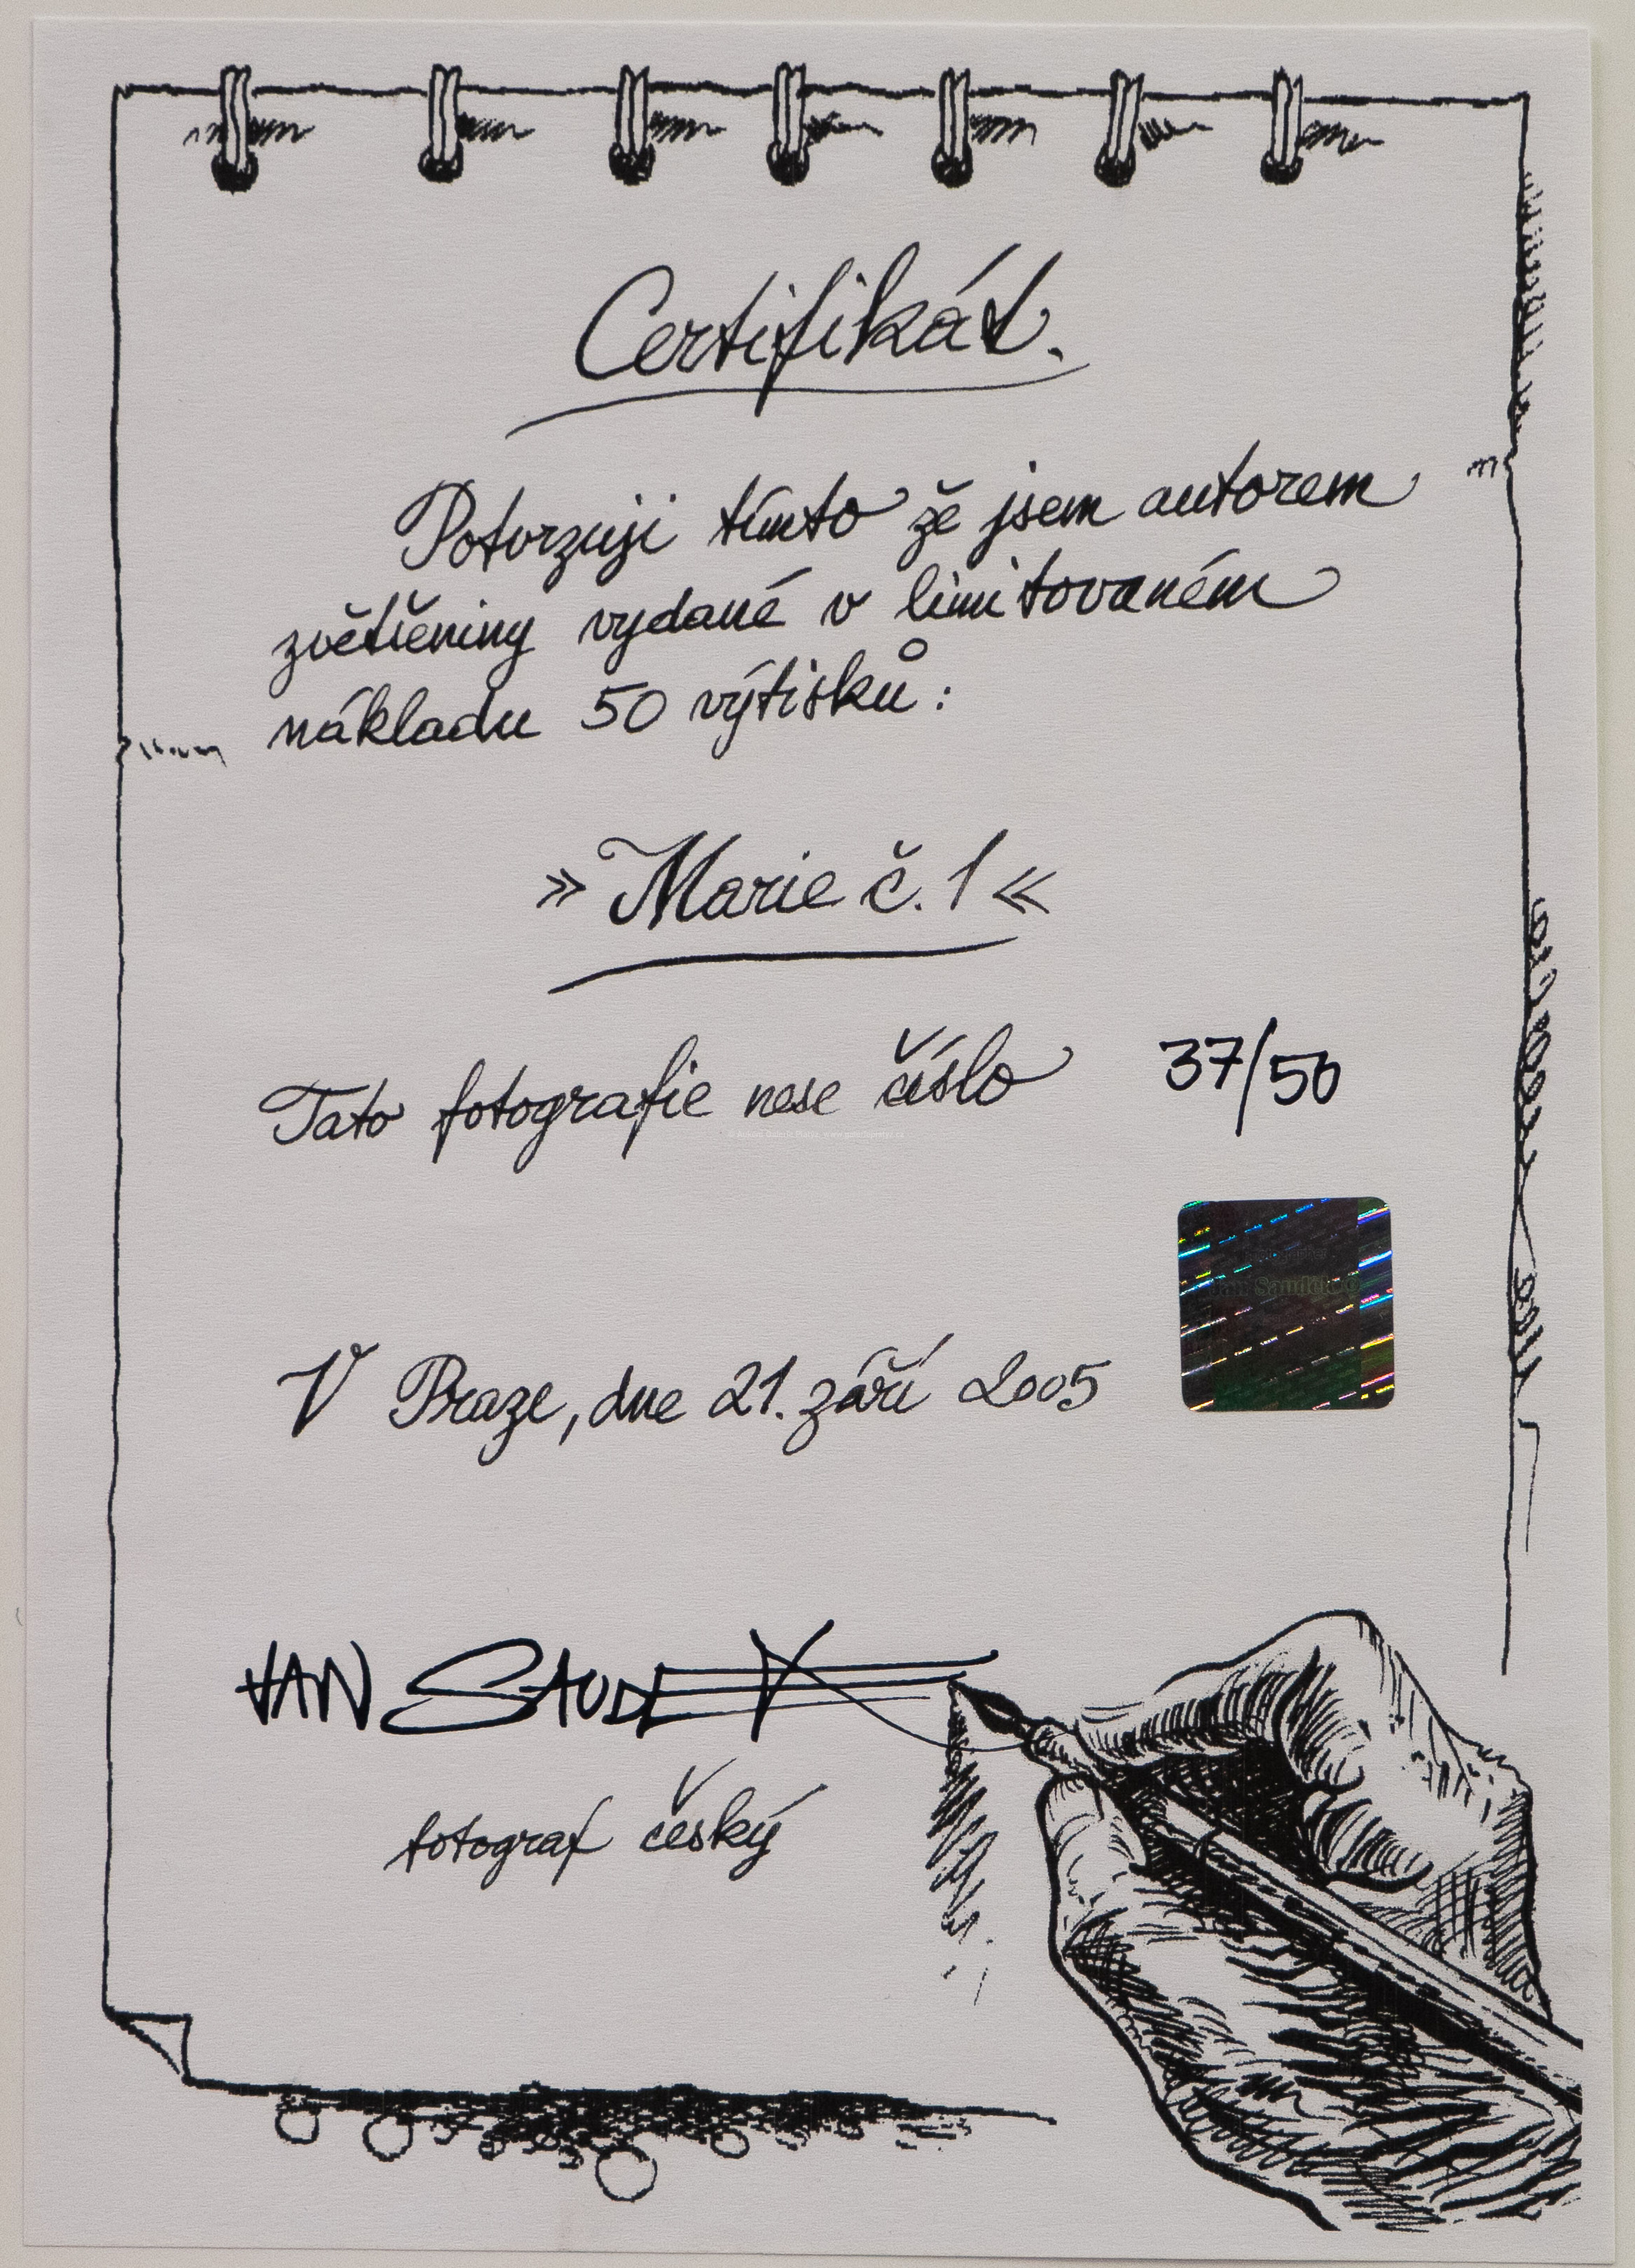 Certifikát.
Potvrzuji tímto že jsem autorem
zvětšeniny vydané v limitovaném
nákladu 50 výtisků:
»Marie č. 1«
Tato fotografie nese číslo 37/50
Jan Saudek
V Praze, dne 21. září 2005
JAN SAUDEK
fotograf český